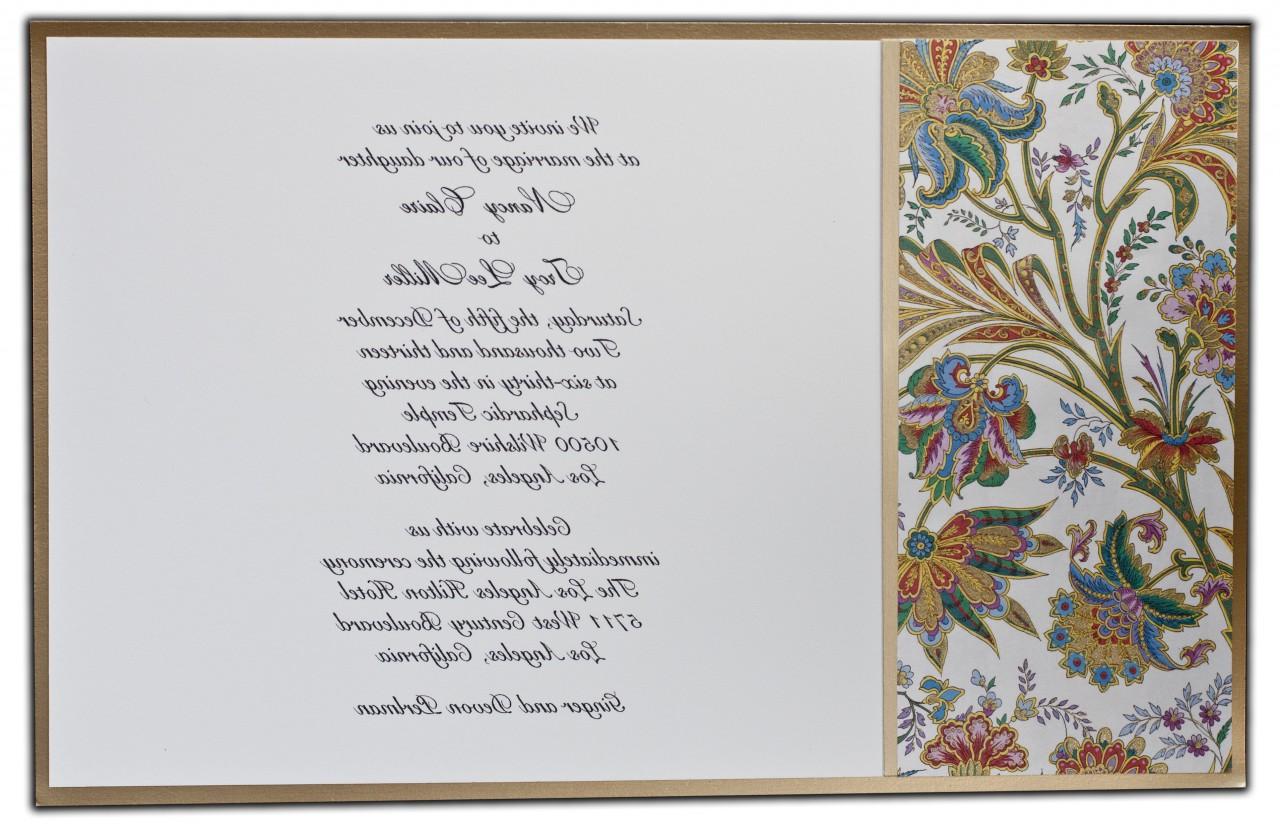 We invite you to join us
at the marriage of our daughter
Nancy Claire
to
Troy Lee Miller
Saturday, the fifth of December
Two thousand and thirteen
at six-thirty in the evening
Sephardic Temple
10500 Wilshire Boulevard
Los Angeles, California
Celebrate with us
immediately following the ceremony
The Los Angeles Hilton Hotel
5711 West Century Boulevard
Los Angeles, California
Ginger and Devon Perlman